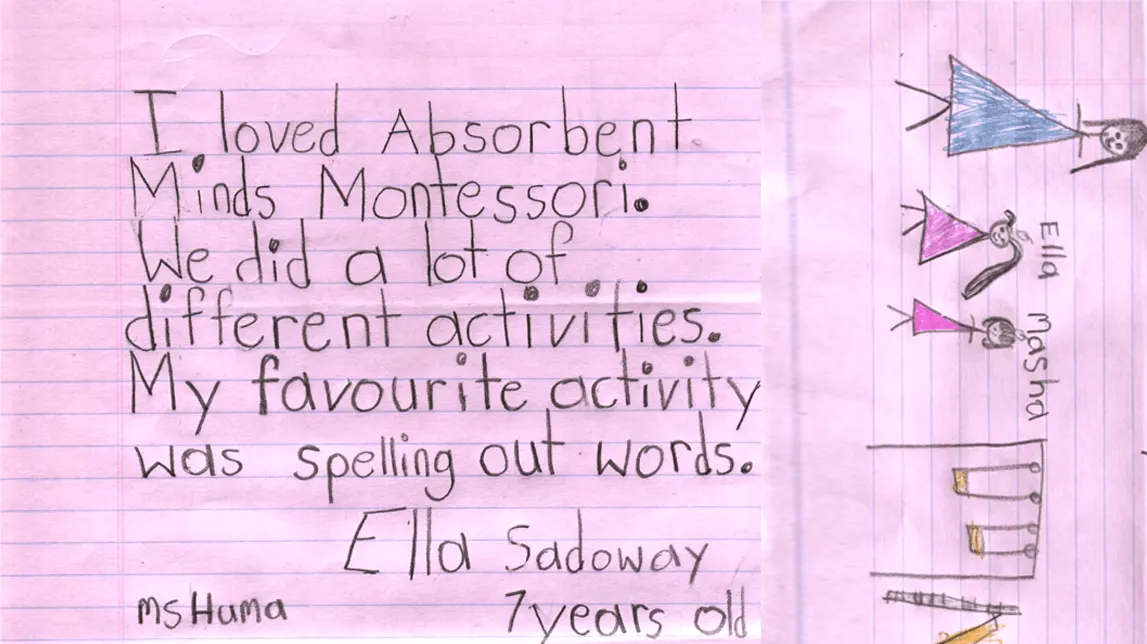 I loved Absorbent
Minds Montessori.
We did a lot of
different activities.
My favourite activity
was spelling out words.
Ella Sadoway
ms Huma 7 years old
Ella
Masha